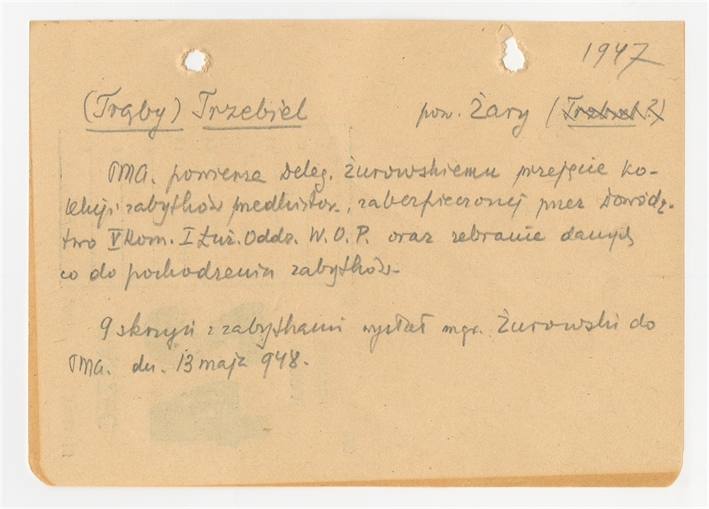 1947
(Trąby) Trzebiel pow. Żary (Trzebiel?)
PMA. powierza Deleg. Żurowskiemu przejęcie ko-
lekcji zabytków predhistor., zabezpieczonej przez Dowódz-
two V Kom. I Łuż. Oddz. W.O.P. oraz zebranie danych
co do pochodzenia zabytków.
9 skrzyń z zabytkami wysłał mgr. Żurowski do
PMA. dn. 13 maja 948.